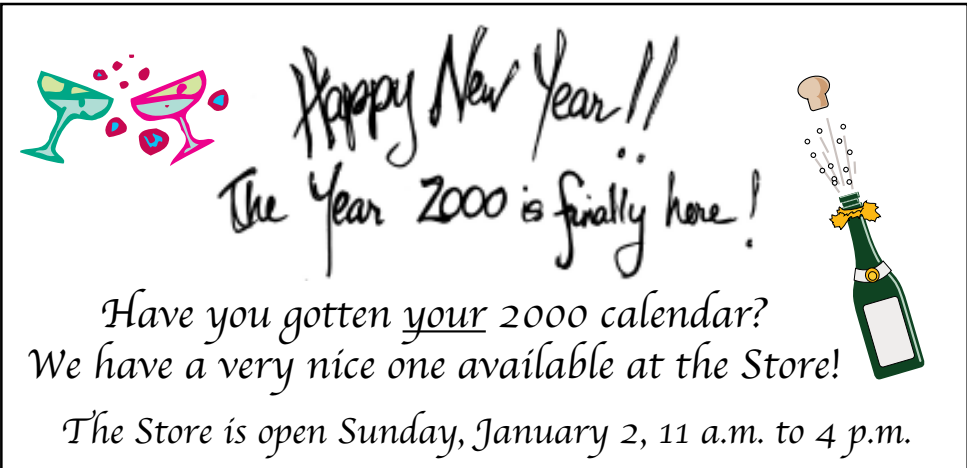 Happy New Year!!
The Year 2000 is finally here!
Have you gotten your 2000 calendar?
We have a very nice one available at the Store!
The Store is open Sunday, January 2, 11 a.m. to 4 p.m.